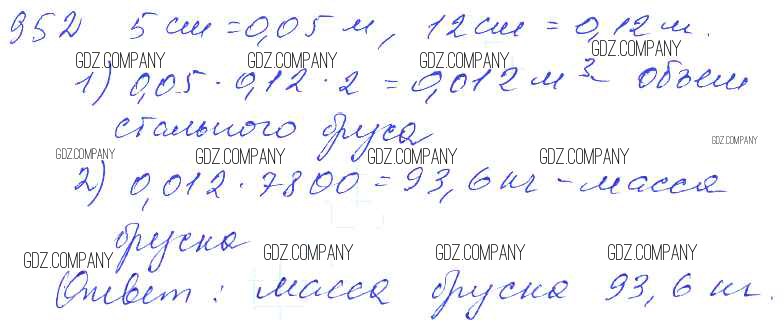 952 5 см = 0,05 м, 12 см = 0,12 м.
GDZ.COMPANY GDZ.COMPANY GDZ.COMPANY
1) 0,05 · 0,12 · 2 = 0,012 м³ - объем
стального бруса
GDZ.COMPANY GDZ.COMPANY GDZ.COMPANY GDZ.COMPANY GDZ.COMPANY
2) 0,012 · 7800 = 93,6 кг - масса
бруска
GDZ.COMPANY GDZ.COMPANY GDZ.COMPANY GDZ.COMPANY
Ответ: масса бруска 93,6 кг.